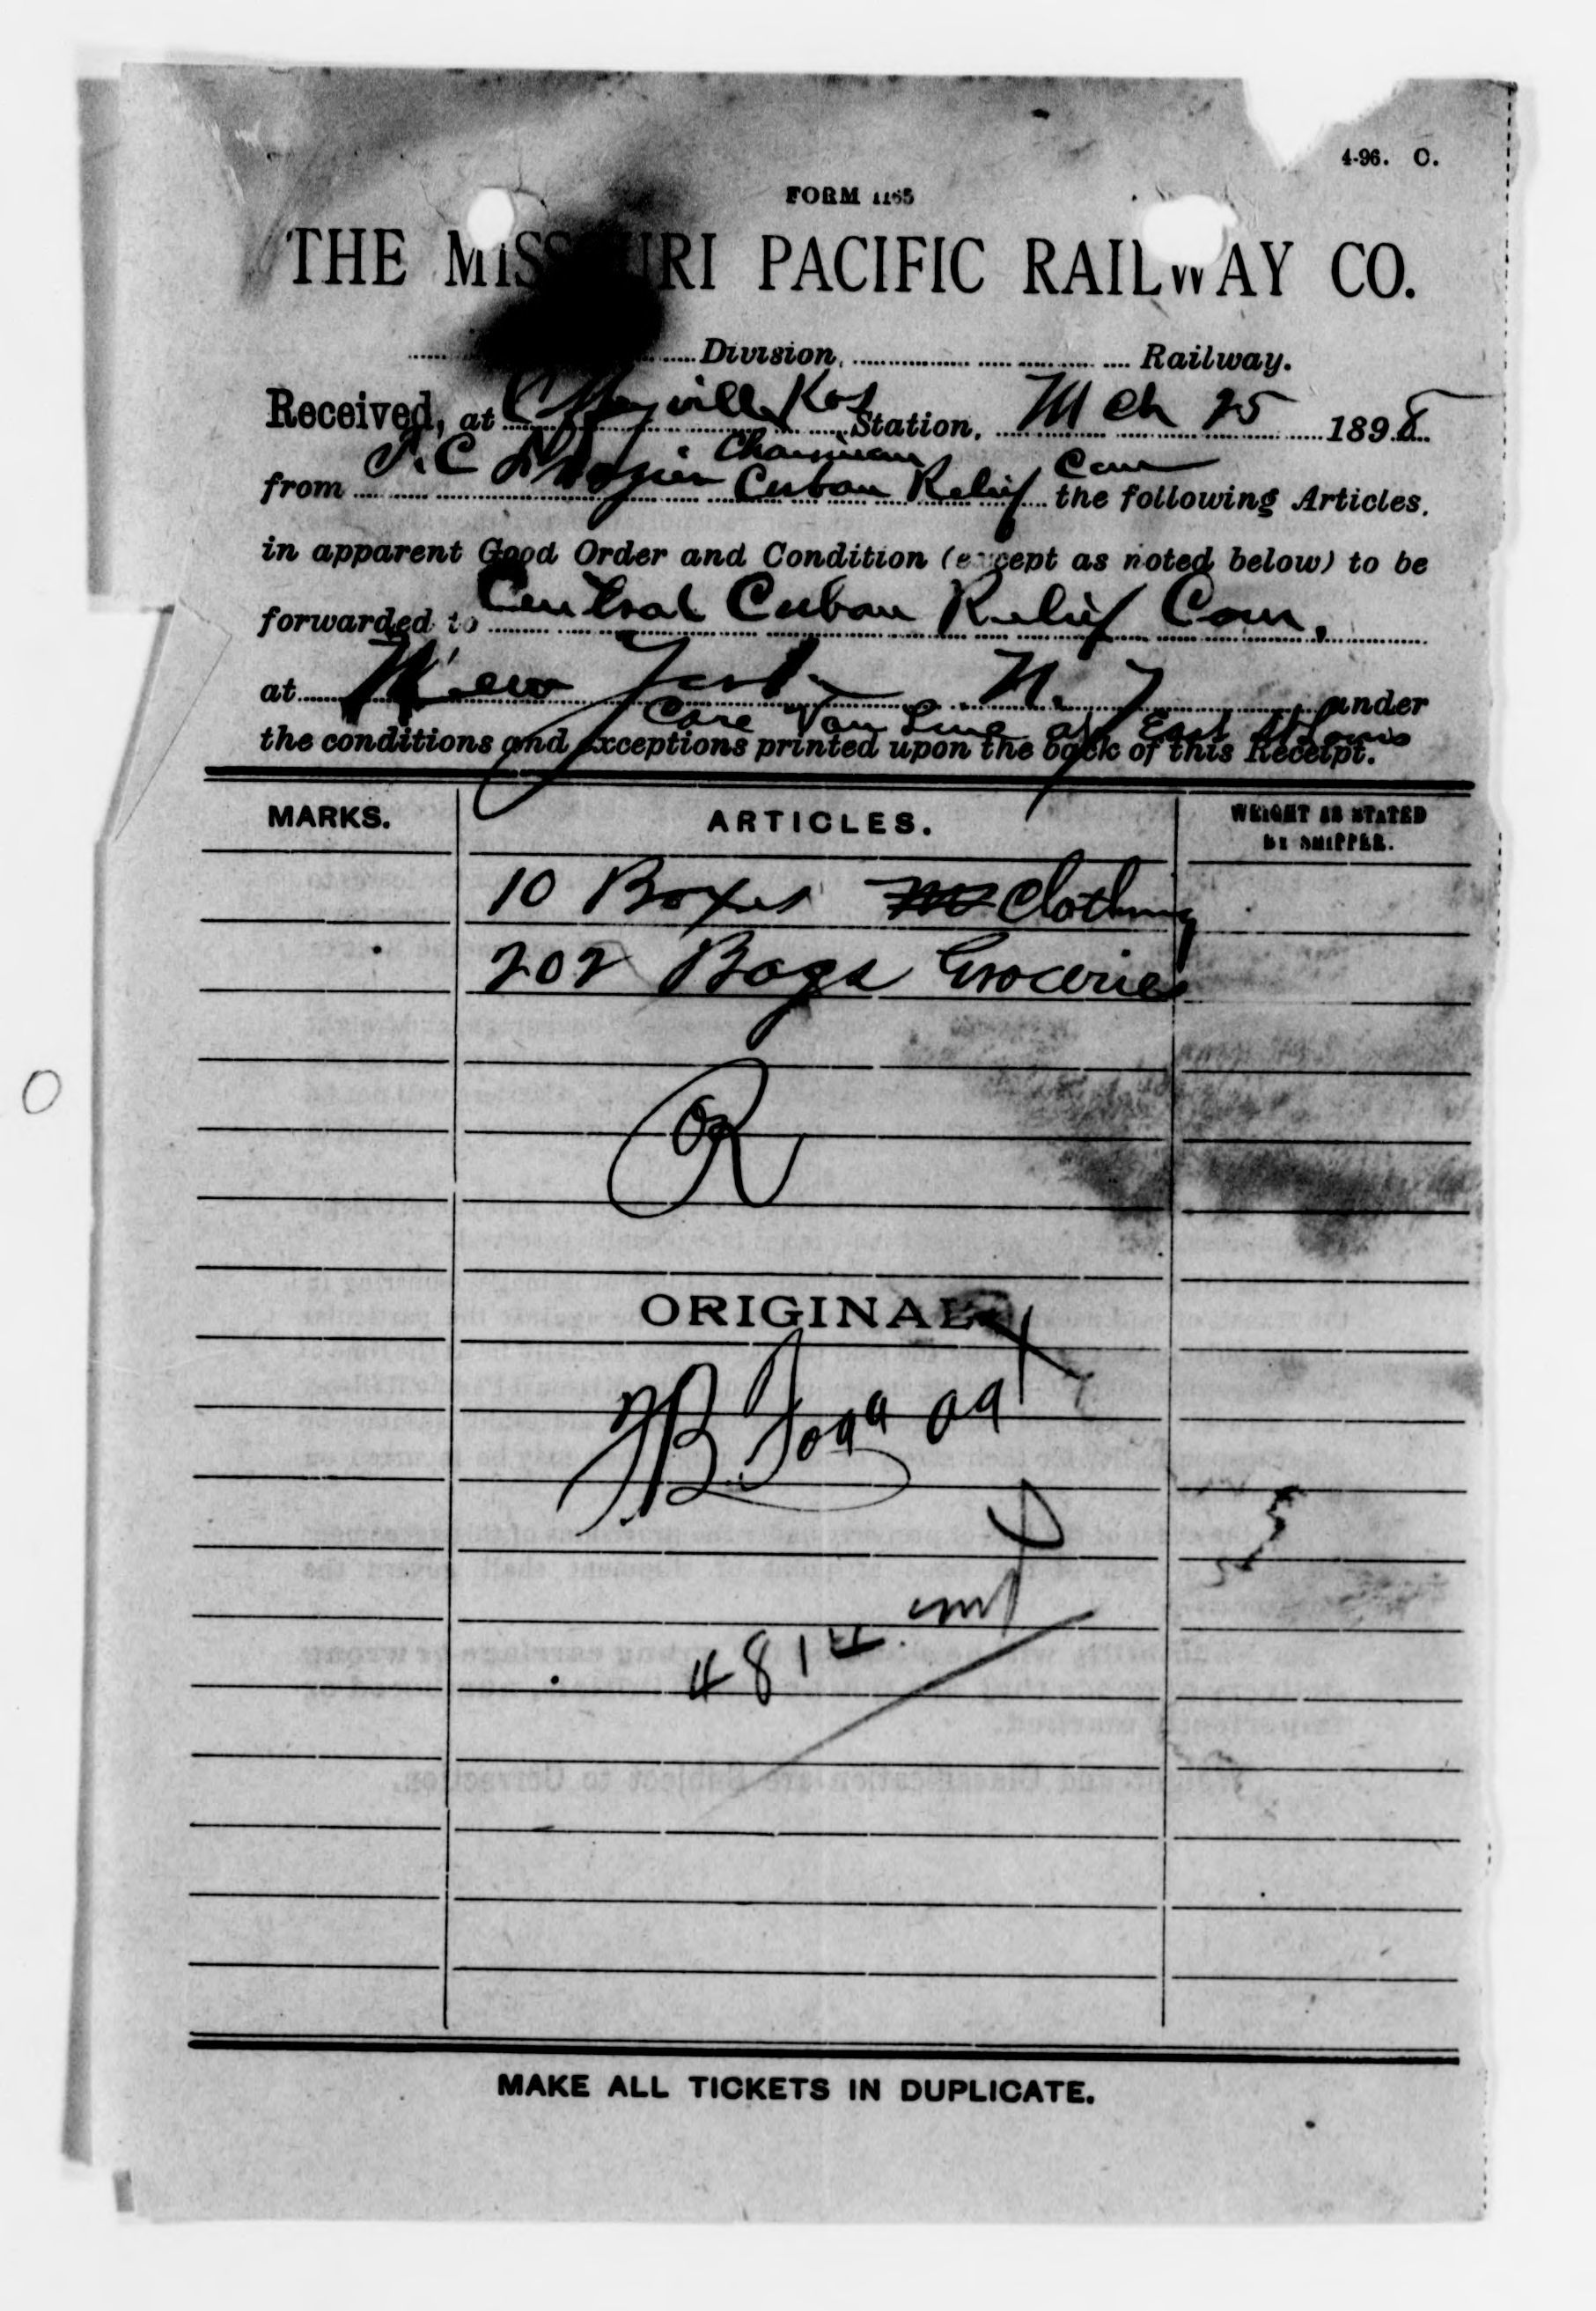 4-96. C.
FORM 1165
THE MISSOURI PACIFIC RAILWAY CO.
Division, Railway.
Received, at Coffeyville Kas Station, Mch 25 1898
Chairman Com
from Cuban Relief the following Articles,
in apparent Good Order and Condition (except as noted below) to be
forwarded to Central Cuban Relief Com,
at New York N. Y under
Care Van Line at East St Louis
the conditions and exceptions printed upon the back of this Receipt.
MARKS. ARTICLES. WEIGHT AS STATED BY SHIPPER.
10 Boxes Clothing
202 Bags Groceries
OR
ORIGINAL
MAKE ALL TICKETS IN DUPLICATE.